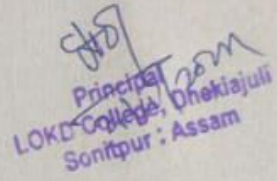 Principal
LOKD College, Dhekiajuli
Sonitpur : Assam